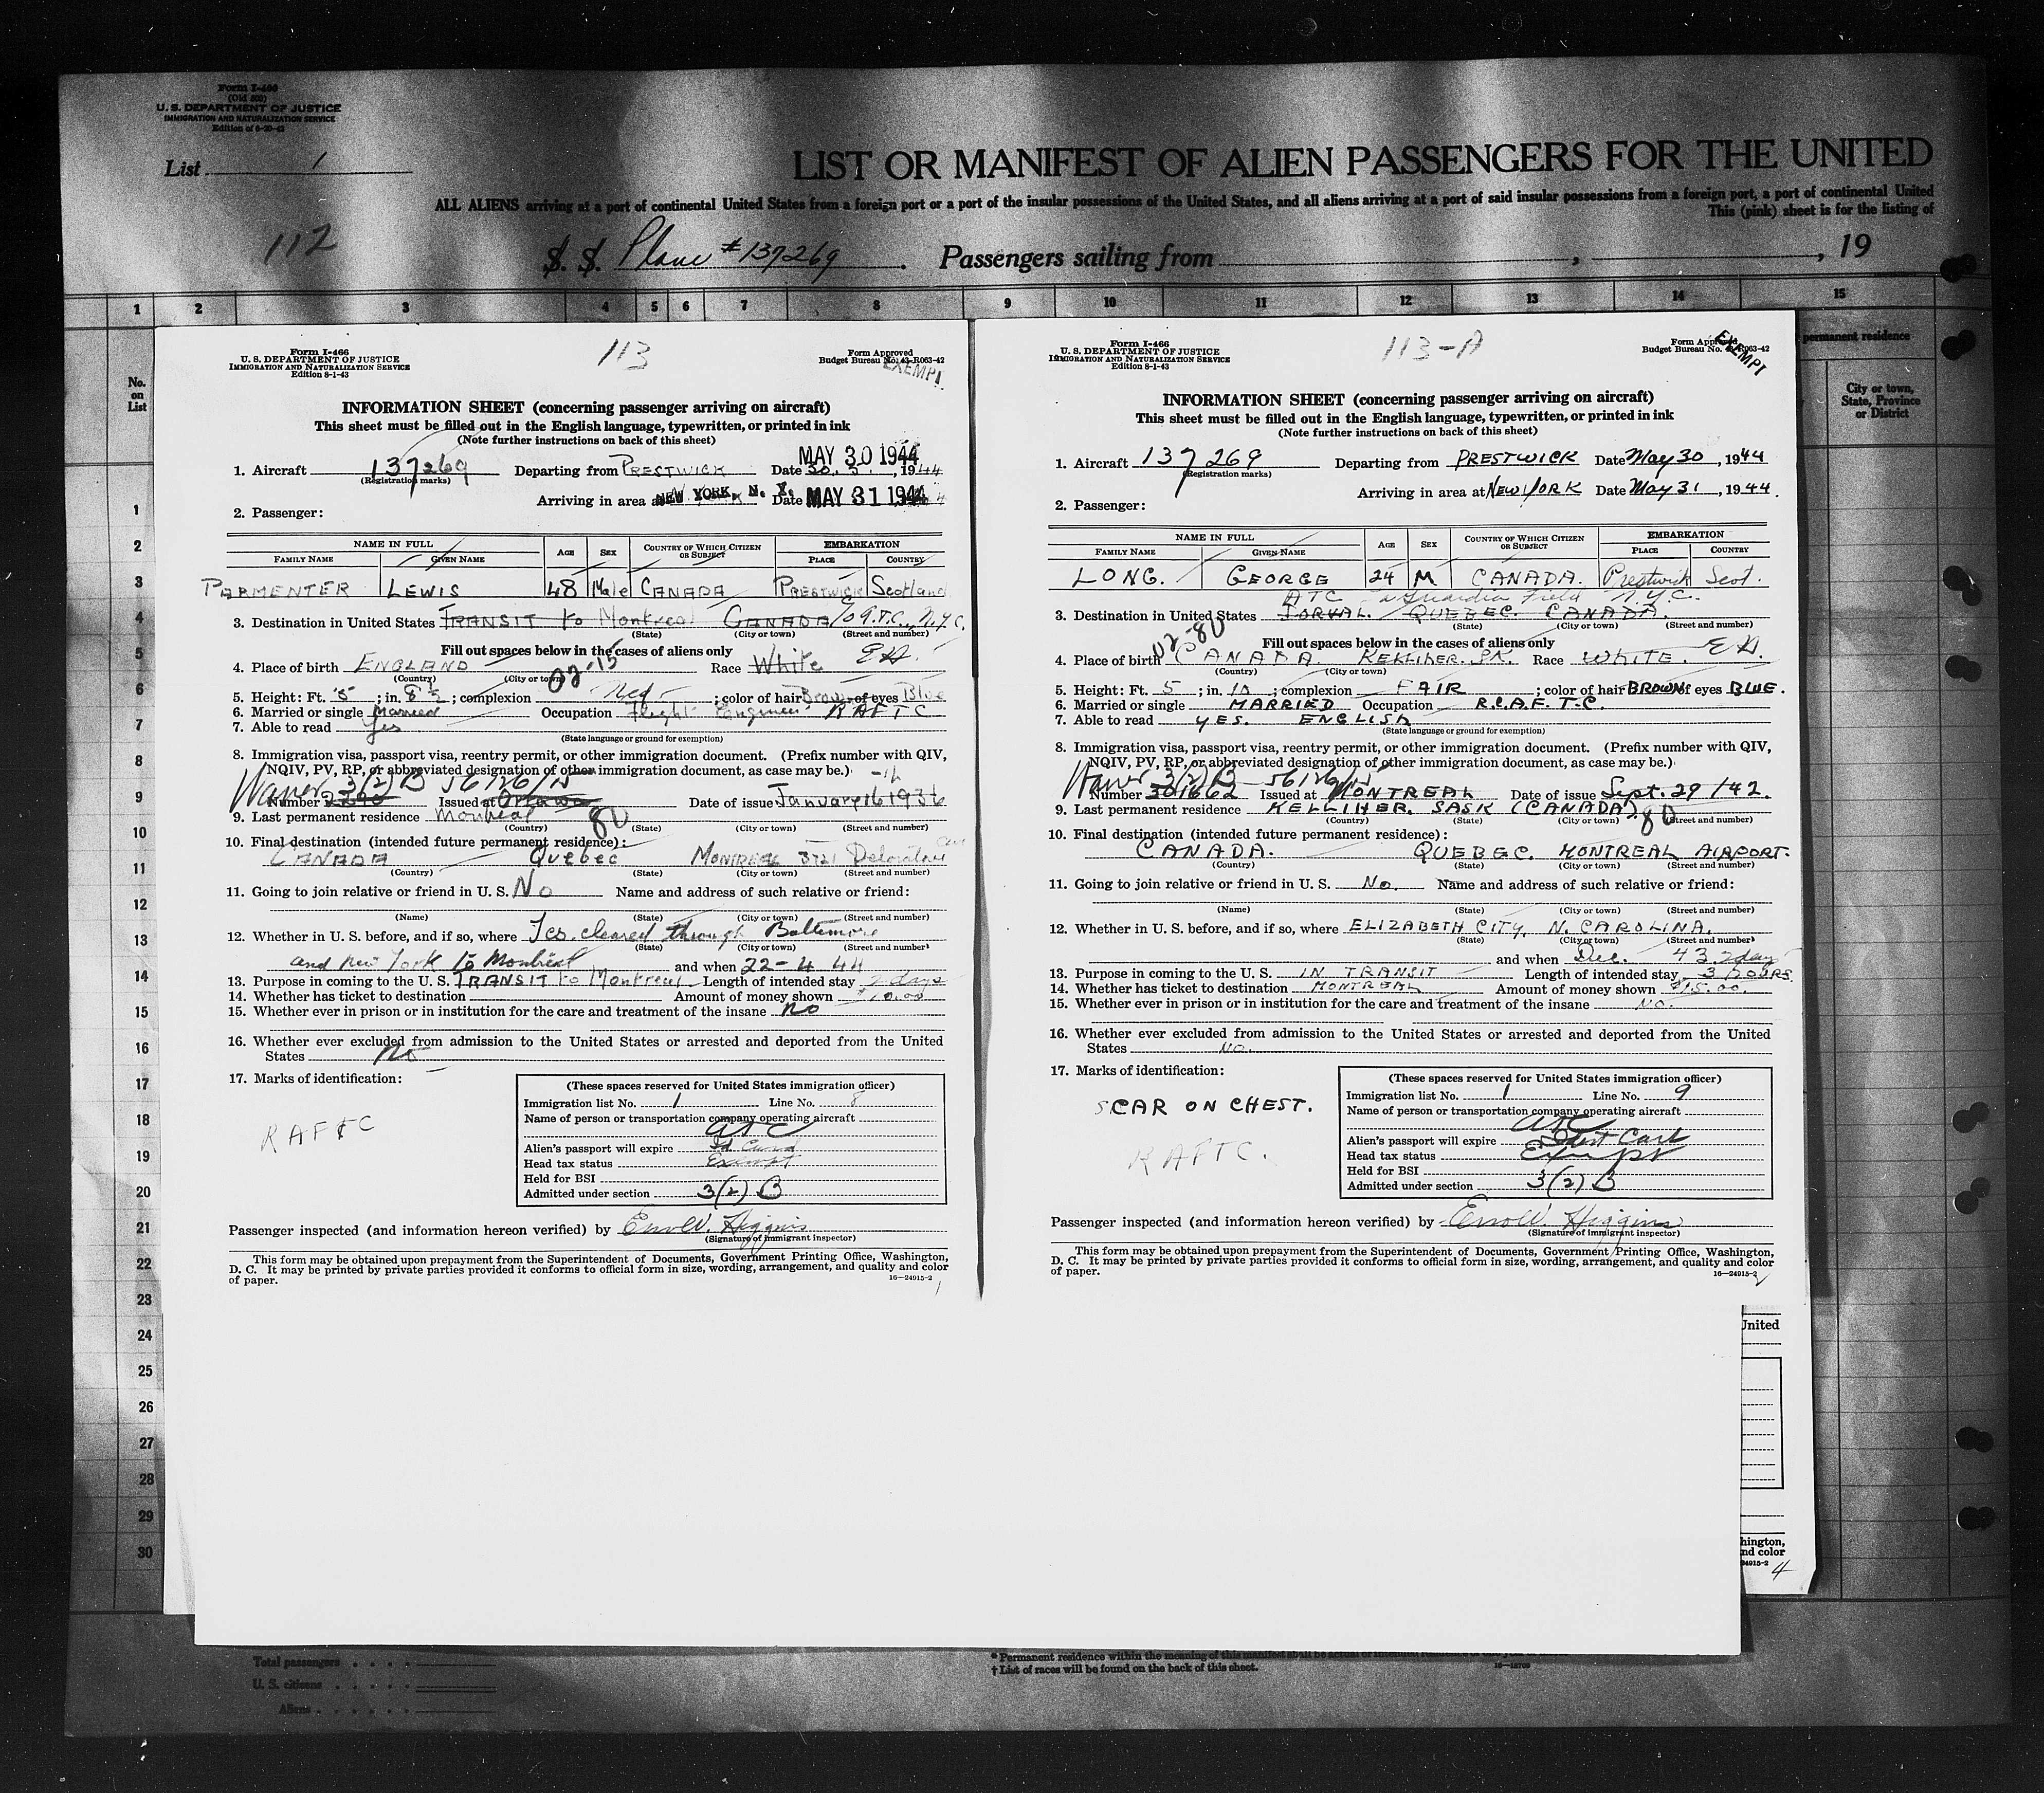 Form I-466
(Old 500)
U. S. DEPARTMENT OF JUSTICE
IMMIGRATION AND NATURALIZATION SERVICE
Edition of 8-20-43
List 1
LIST OR MANIFEST OF ALIEN PASSENGERS FOR THE UNITED
ALL ALIENS arriving at a port of continental United States from a foreign port or a port of the insular possessions of the United States, and all aliens arriving at a port of said insular possessions from a foreign port, a port of continental United
This (pink) sheet is for the listing of
112
S. S. Plane #137269. Passengers sailing from , , 19
1 2 3 4 5 6 7 8 9 10 11 12 13 14 15
permanent residence
No. on List
City or town, State, Province or District
1
2
3
4
5
6
7
8
9
10
11
12
13
14
15
16
17
18
19
20
21
22
23
24
25
26
27
28
29
30
Form I-466
U. S. DEPARTMENT OF JUSTICE
IMMIGRATION AND NATURALIZATION SERVICE
Edition 8-1-43
113
Form Approved
Budget Bureau No. 43-R063-42
EXEMPT
INFORMATION SHEET (concerning passenger arriving on aircraft)
This sheet must be filled out in the English language, typewritten, or printed in ink
(Note further instructions on back of this sheet)
MAY 30 1944
1. Aircraft 137269 Departing from PRESTWICK Date 30. 5. , 1944
(Registration marks)
Arriving in area at NEW YORK, N. Y. Date MAY 31 1944
2. Passenger:
NAME IN FULL AGE SEX COUNTRY OF WHICH CITIZEN OR SUBJECT EMBARKATION
FAMILY NAME GIVEN NAME PLACE COUNTRY
PARMENTER LEWIS 48 Male CANADA PRESTWICK Scotland
3. Destination in United States TRANSIT to Montreal CANADA C/o A.T.C., N.Y.C.
(State) (City or town) (Street and number)
Fill out spaces below in the cases of aliens only
4. Place of birth ENGLAND 02-15 Race White
(Country) (City or town)
5. Height: Ft. 5 ; in. 8½ ; complexion Med ; color of hair Brown of eyes Blue
6. Married or single Married Occupation Flight Engineer RAFTC
7. Able to read Yes
(State language or ground for exemption)
8. Immigration visa, passport visa, reentry permit, or other immigration document. (Prefix number with QIV,
NQIV, PV, RP, or abbreviated designation of other immigration document, as case may be.)
Waiver 3(2)B 56126/15
Number 2290 Issued at Ottawa Date of issue January 16 1936
9. Last permanent residence Montreal 80
(Country) (State) (City or town) (Street and number)
10. Final destination (intended future permanent residence):
CANADA Quebec MONTREAL 3721
(Country) (State) (City or town) (Street and number)
11. Going to join relative or friend in U. S. No Name and address of such relative or friend:
(Name) (State) (City or town) (Street and number)
12. Whether in U. S. before, and if so, where Yes. cleared through Baltimore
(State) (City or town) (Street and number)
and New York to Montreal and when 22-4 44
13. Purpose in coming to the U. S. TRANSIT to Montreal Length of intended stay 2 days
14. Whether has ticket to destination Amount of money shown $10.00
15. Whether ever in prison or in institution for the care and treatment of the insane No
16. Whether ever excluded from admission to the United States or arrested and deported from the United
States No
17. Marks of identification:
RAFTC
(These spaces reserved for United States immigration officer)
Immigration list No. 1 Line No. 8
Name of person or transportation company operating aircraft
ATC
Alien's passport will expire Id Card
Head tax status Exempt
Held for BSI
Admitted under section 3(2) B
Passenger inspected (and information hereon verified) by Errol W. Higgins
(Signature of immigrant inspector)
This form may be obtained upon prepayment from the Superintendent of Documents, Government Printing Office, Washington,
D. C. It may be printed by private parties provided it conforms to official form in size, wording, arrangement, and quality and color
of paper. 16—24915-2
Form I-466
U. S. DEPARTMENT OF JUSTICE
IMMIGRATION AND NATURALIZATION SERVICE
Edition 8-1-43
113-A
Form Approved
Budget Bureau No. 43-R063-42
EXEMPT
INFORMATION SHEET (concerning passenger arriving on aircraft)
This sheet must be filled out in the English language, typewritten, or printed in ink
(Note further instructions on back of this sheet)
1. Aircraft 137269 Departing from PRESTWICK Date May 30 , 1944
(Registration marks)
Arriving in area at NEW YORK Date May 31 , 1944.
2. Passenger:
NAME IN FULL AGE SEX COUNTRY OF WHICH CITIZEN OR SUBJECT EMBARKATION
FAMILY NAME GIVEN NAME PLACE COUNTRY
LONG. GEORGE 24 M CANADA. Prestwick Scot.
ATC La Guardia Field N.Y.C.
3. Destination in United States DORVAL. QUEBEC. CANADA.
(State) (City or town) (Street and number)
02-80
Fill out spaces below in the cases of aliens only
4. Place of birth CANADA. KELLIHER. SK. Race WHITE.
(Country) (City or town)
5. Height: Ft. 5 ; in. 10 ; complexion FAIR ; color of hair BROWN of eyes BLUE.
6. Married or single MARRIED Occupation R.C.A.F. T.C.
7. Able to read YES. ENGLISH
(State language or ground for exemption)
8. Immigration visa, passport visa, reentry permit, or other immigration document. (Prefix number with QIV,
NQIV, PV, RP, or abbreviated designation of other immigration document, as case may be.)
Waiver 3(2)B 56126/15
Number 301662 Issued at MONTREAL Date of issue Sept. 29/42.
9. Last permanent residence KELLIHER. SASK (CANADA) 80
(Country) (State) (City or town) (Street and number)
10. Final destination (intended future permanent residence):
CANADA. QUEBEC. MONTREAL AIRPORT.
(Country) (State) (City or town) (Street and number)
11. Going to join relative or friend in U. S. No. Name and address of such relative or friend:
(Name) (State) (City or town) (Street and number)
12. Whether in U. S. before, and if so, where ELIZABETH CITY, N. CAROLINA.
(State) (City or town) (Street and number)
and when Dec. 43. 2 days
13. Purpose in coming to the U. S. IN TRANSIT Length of intended stay 3 HOURS
14. Whether has ticket to destination MONTREAL Amount of money shown $15.00.
15. Whether ever in prison or in institution for the care and treatment of the insane NO.
16. Whether ever excluded from admission to the United States or arrested and deported from the United
States NO.
17. Marks of identification:
SCAR ON CHEST.
RAFTC.
(These spaces reserved for United States immigration officer)
Immigration list No. 1 Line No. 9
Name of person or transportation company operating aircraft
ATC
Alien's passport will expire
Head tax status Exempt
Held for BSI
Admitted under section 3(2) B
Passenger inspected (and information hereon verified) by Errol W. Higgins
(Signature of immigrant inspector)
This form may be obtained upon prepayment from the Superintendent of Documents, Government Printing Office, Washington,
D. C. It may be printed by private parties provided it conforms to official form in size, wording, arrangement, and quality and color
of paper. 16—24915-2
United
hington,
nd color
24915-2
4
Total passengers
U. S. citizens
Aliens
* Permanent residence within the meaning of this manifest shall be actual or intended residence
† List of races will be found on the back of this sheet.